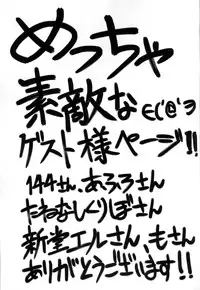 めっちゃ
素敵な
ゲスト様ページ!!
144さん、あろろさん
たねむしくりぼさん
新堂エルさん、もさん
ありがとうございます!!